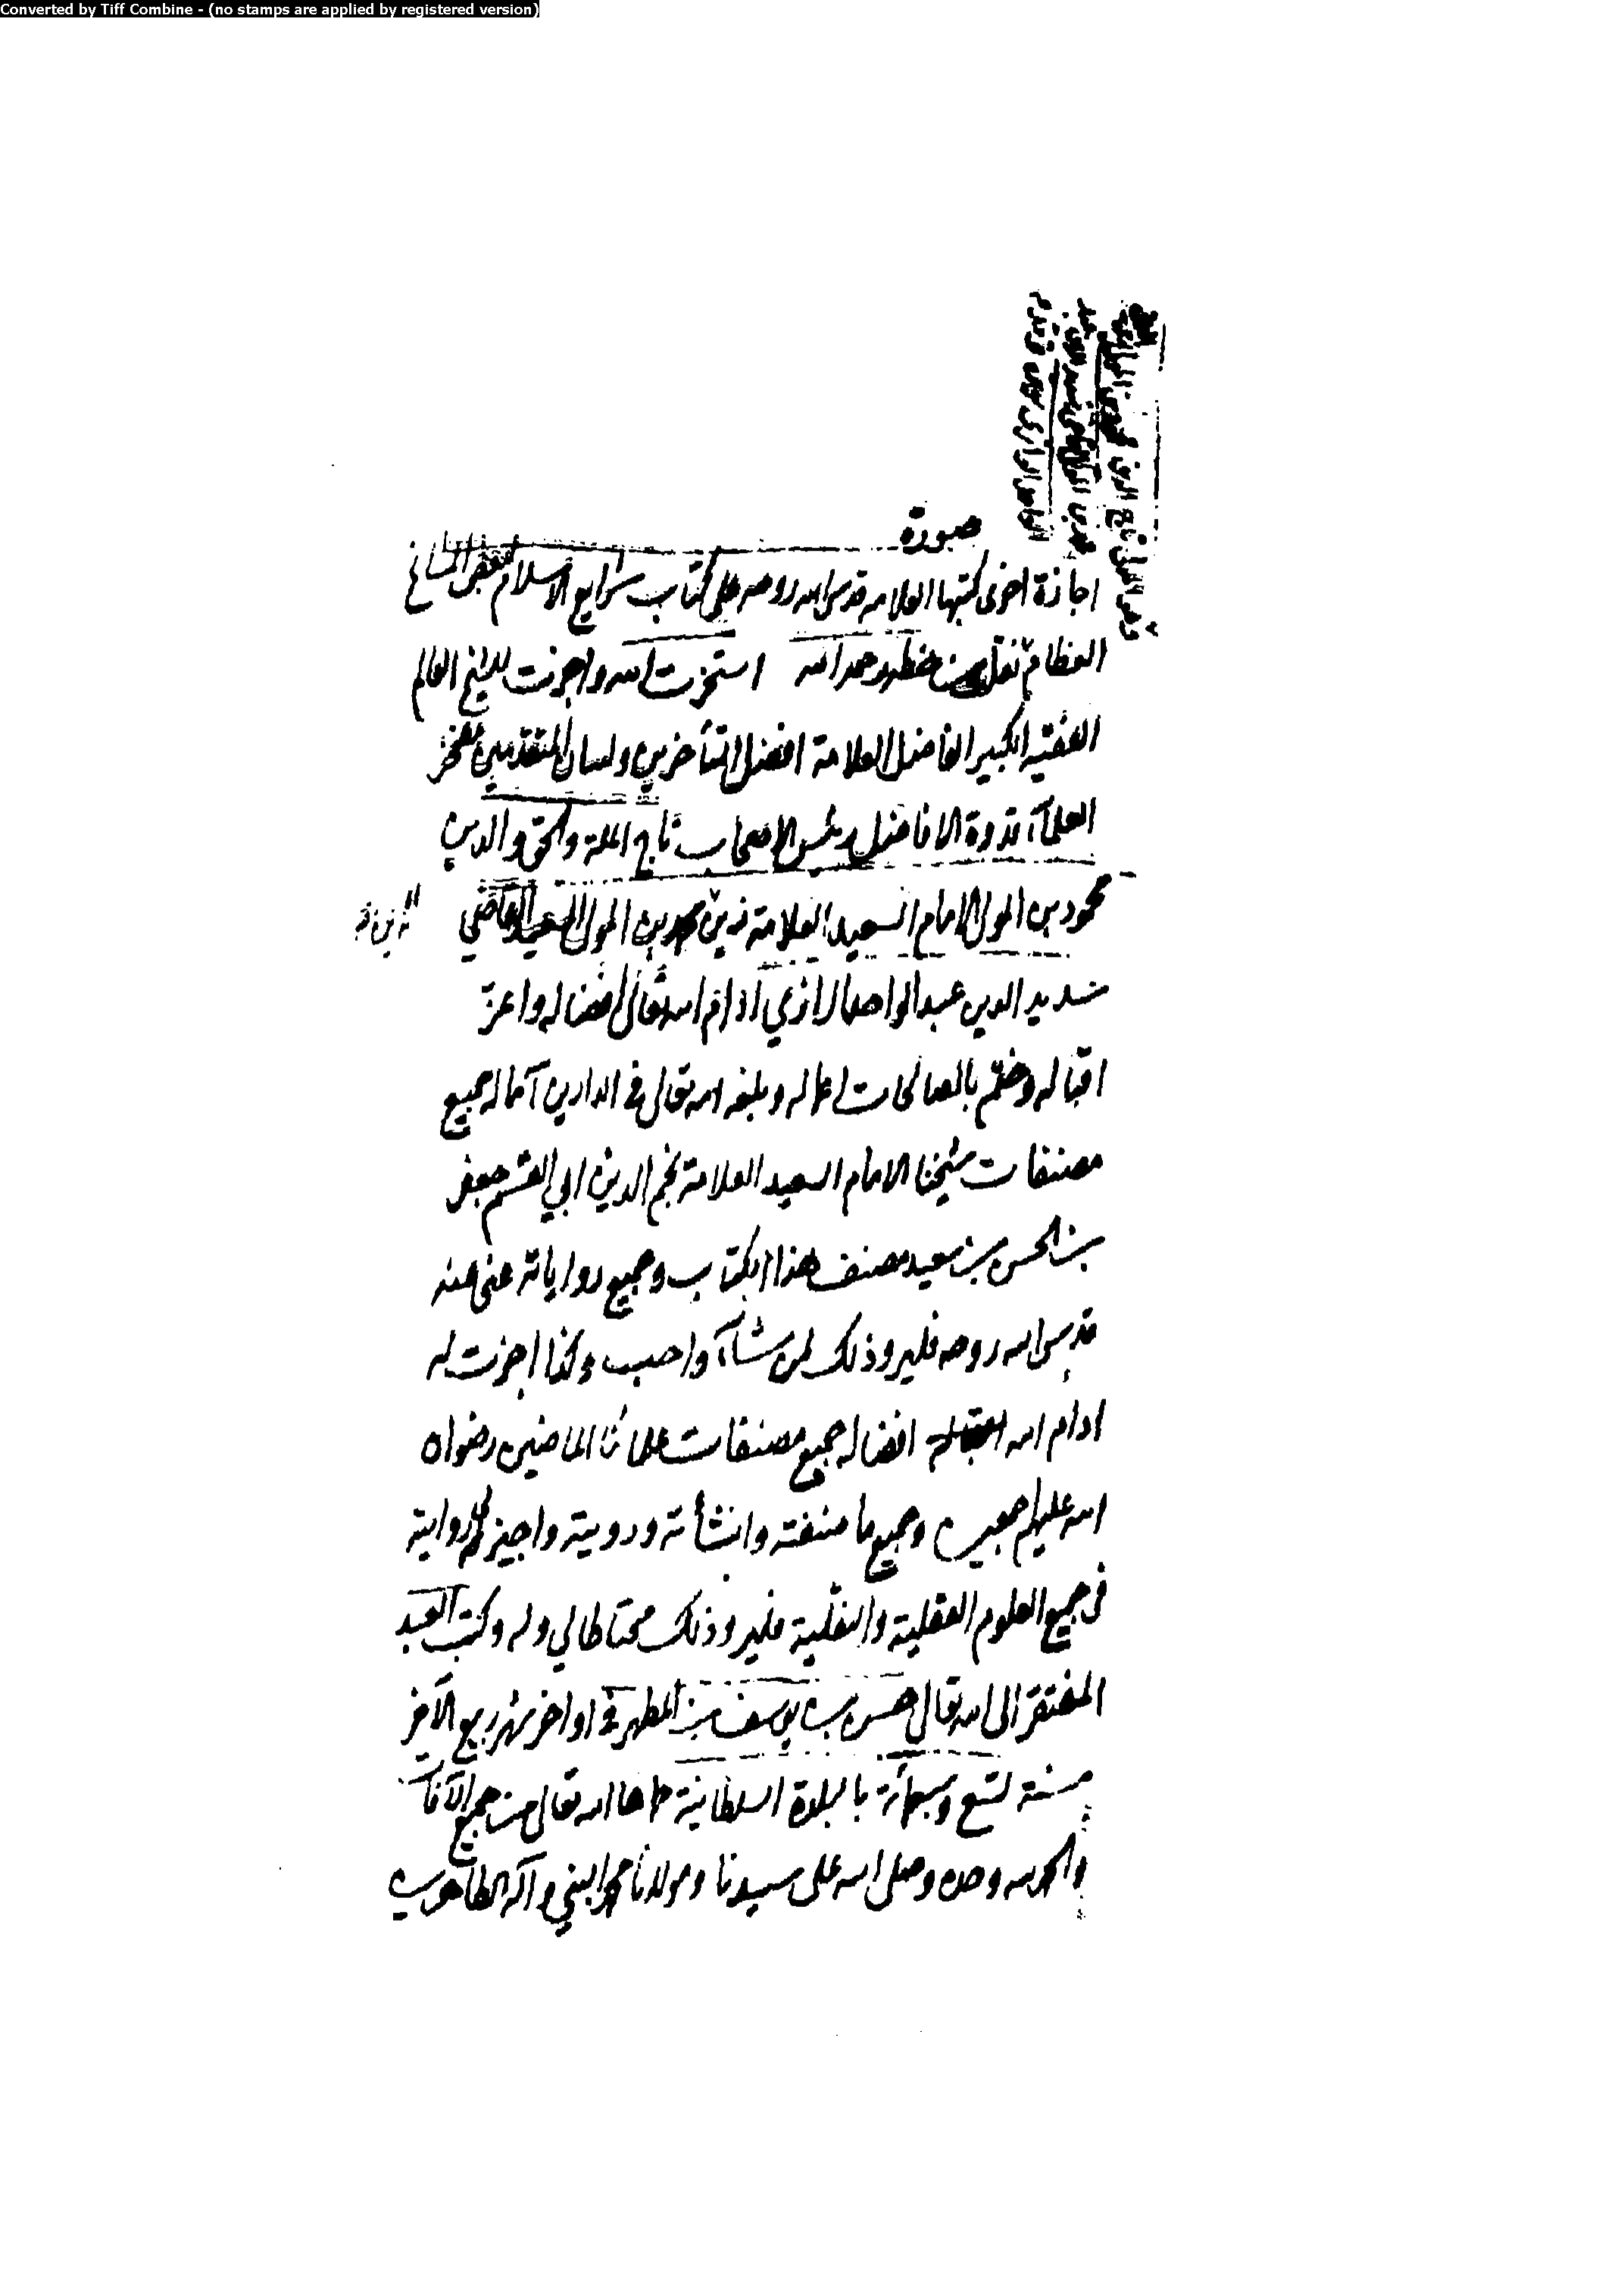 Converted by Tiff Combine - (no stamps are applied by registered version)
صورة
اجازة اخرى كتبها العلامه قدس الله روحه على كتاب شرايع الاسلام لبعض المشايخ
العظام نقل من خطه رحمه الله استخرت الله واجزت للشيخ العالم
الفقيه الكبير الفاضل العلامة افضل المتأخرين ولسان المتقدمين مفخر
العلمآء قدوة الافاضل رئيس الاصحاب تاج الملة والحق والدين
محمود بن المولى الامام السعيد العلامة زين محمد بن المولى السعيد القاضي
سديد الدين عبد الواحد الرازي ادام الله تعالى افضاله واعز
اقباله وختم بالصالحات اعماله وبلغه الله تعالى في الدارين آماله جميع
مصنفات شيخنا الامام السعيد العلامة نجم الدين ابي القسم جعفر
بن الحسن بن سعيد مصنف هذا الكتاب وجميع رواياته عني عنه
قدس الله روحه فليرو ذلك لمن شآء واحب وكذا اجزت له
ادام الله افضاله جميع مصنفات علمائنا الماضين رضوان
الله عليهم اجمعين وجميع ما صنفته وانشأته ورويته واجيز لي روايته
في جميع العلوم العقلية والنقلية فليرو ذلك محتاطا لي وله وكتب العبد
المفتقر الى الله تعالى حسن بن يوسف بن المطهر في اواخر شهر ربيع الآخر
سنة تسع وسبعمائة بالبلدة السلطانية حماها الله تعالى من جميع الآفات
والحمد لله وحده وصلى الله على سيدنا ومولانا محمد النبي وآله الطاهرين